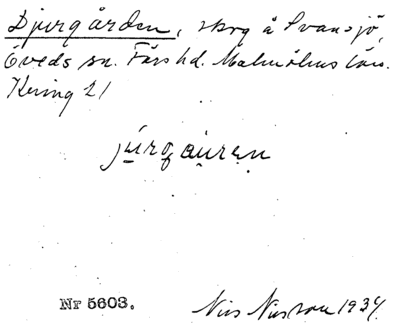 Djurgården, skog å Svansjö,
Öveds sn. Färs hd. Malmöhus län.
Kering 21
júrgau̯rɛn
Nr 5603.
Nils Nilsson 1934.